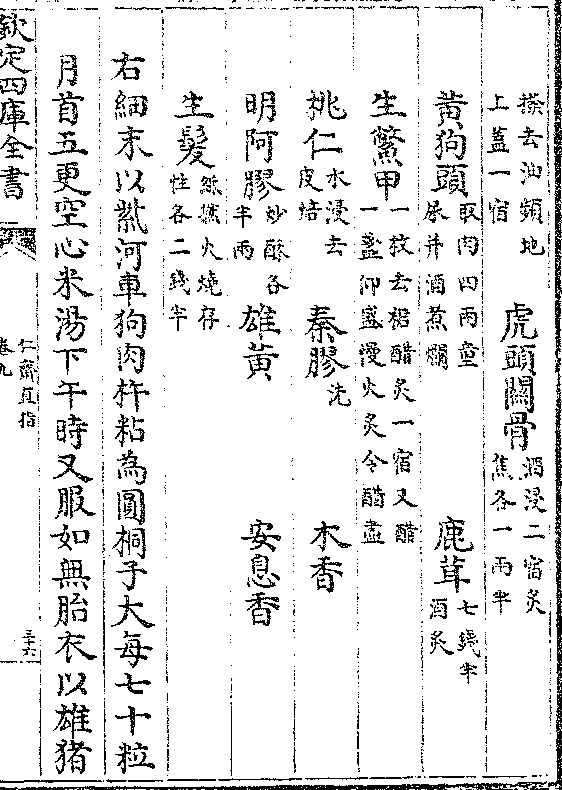 搽去油類地
上蓋一宿
虎頭關骨 酒浸二宿炙
焦各一兩半
黄狗頭 取肉四兩童
尿并酒煮爛
鹿茸 七錢半
酒炙
生鱉甲 一枚去裙醋炙一宿又醋
一盞仰盛慢火炙令醋盡
桃仁 水浸去
皮焙
秦膠 洗
木香
明阿膠 炒酥各
半兩
雄黄
安息香
生髮 火燒存
性各二錢半
右細末以紫河車狗肉杵粘為圓桐子大每七十粒
月首五更空心米湯下午時又服如無胎衣以雄豬
欽定四庫全書
仁齋直指
卷九
三十六